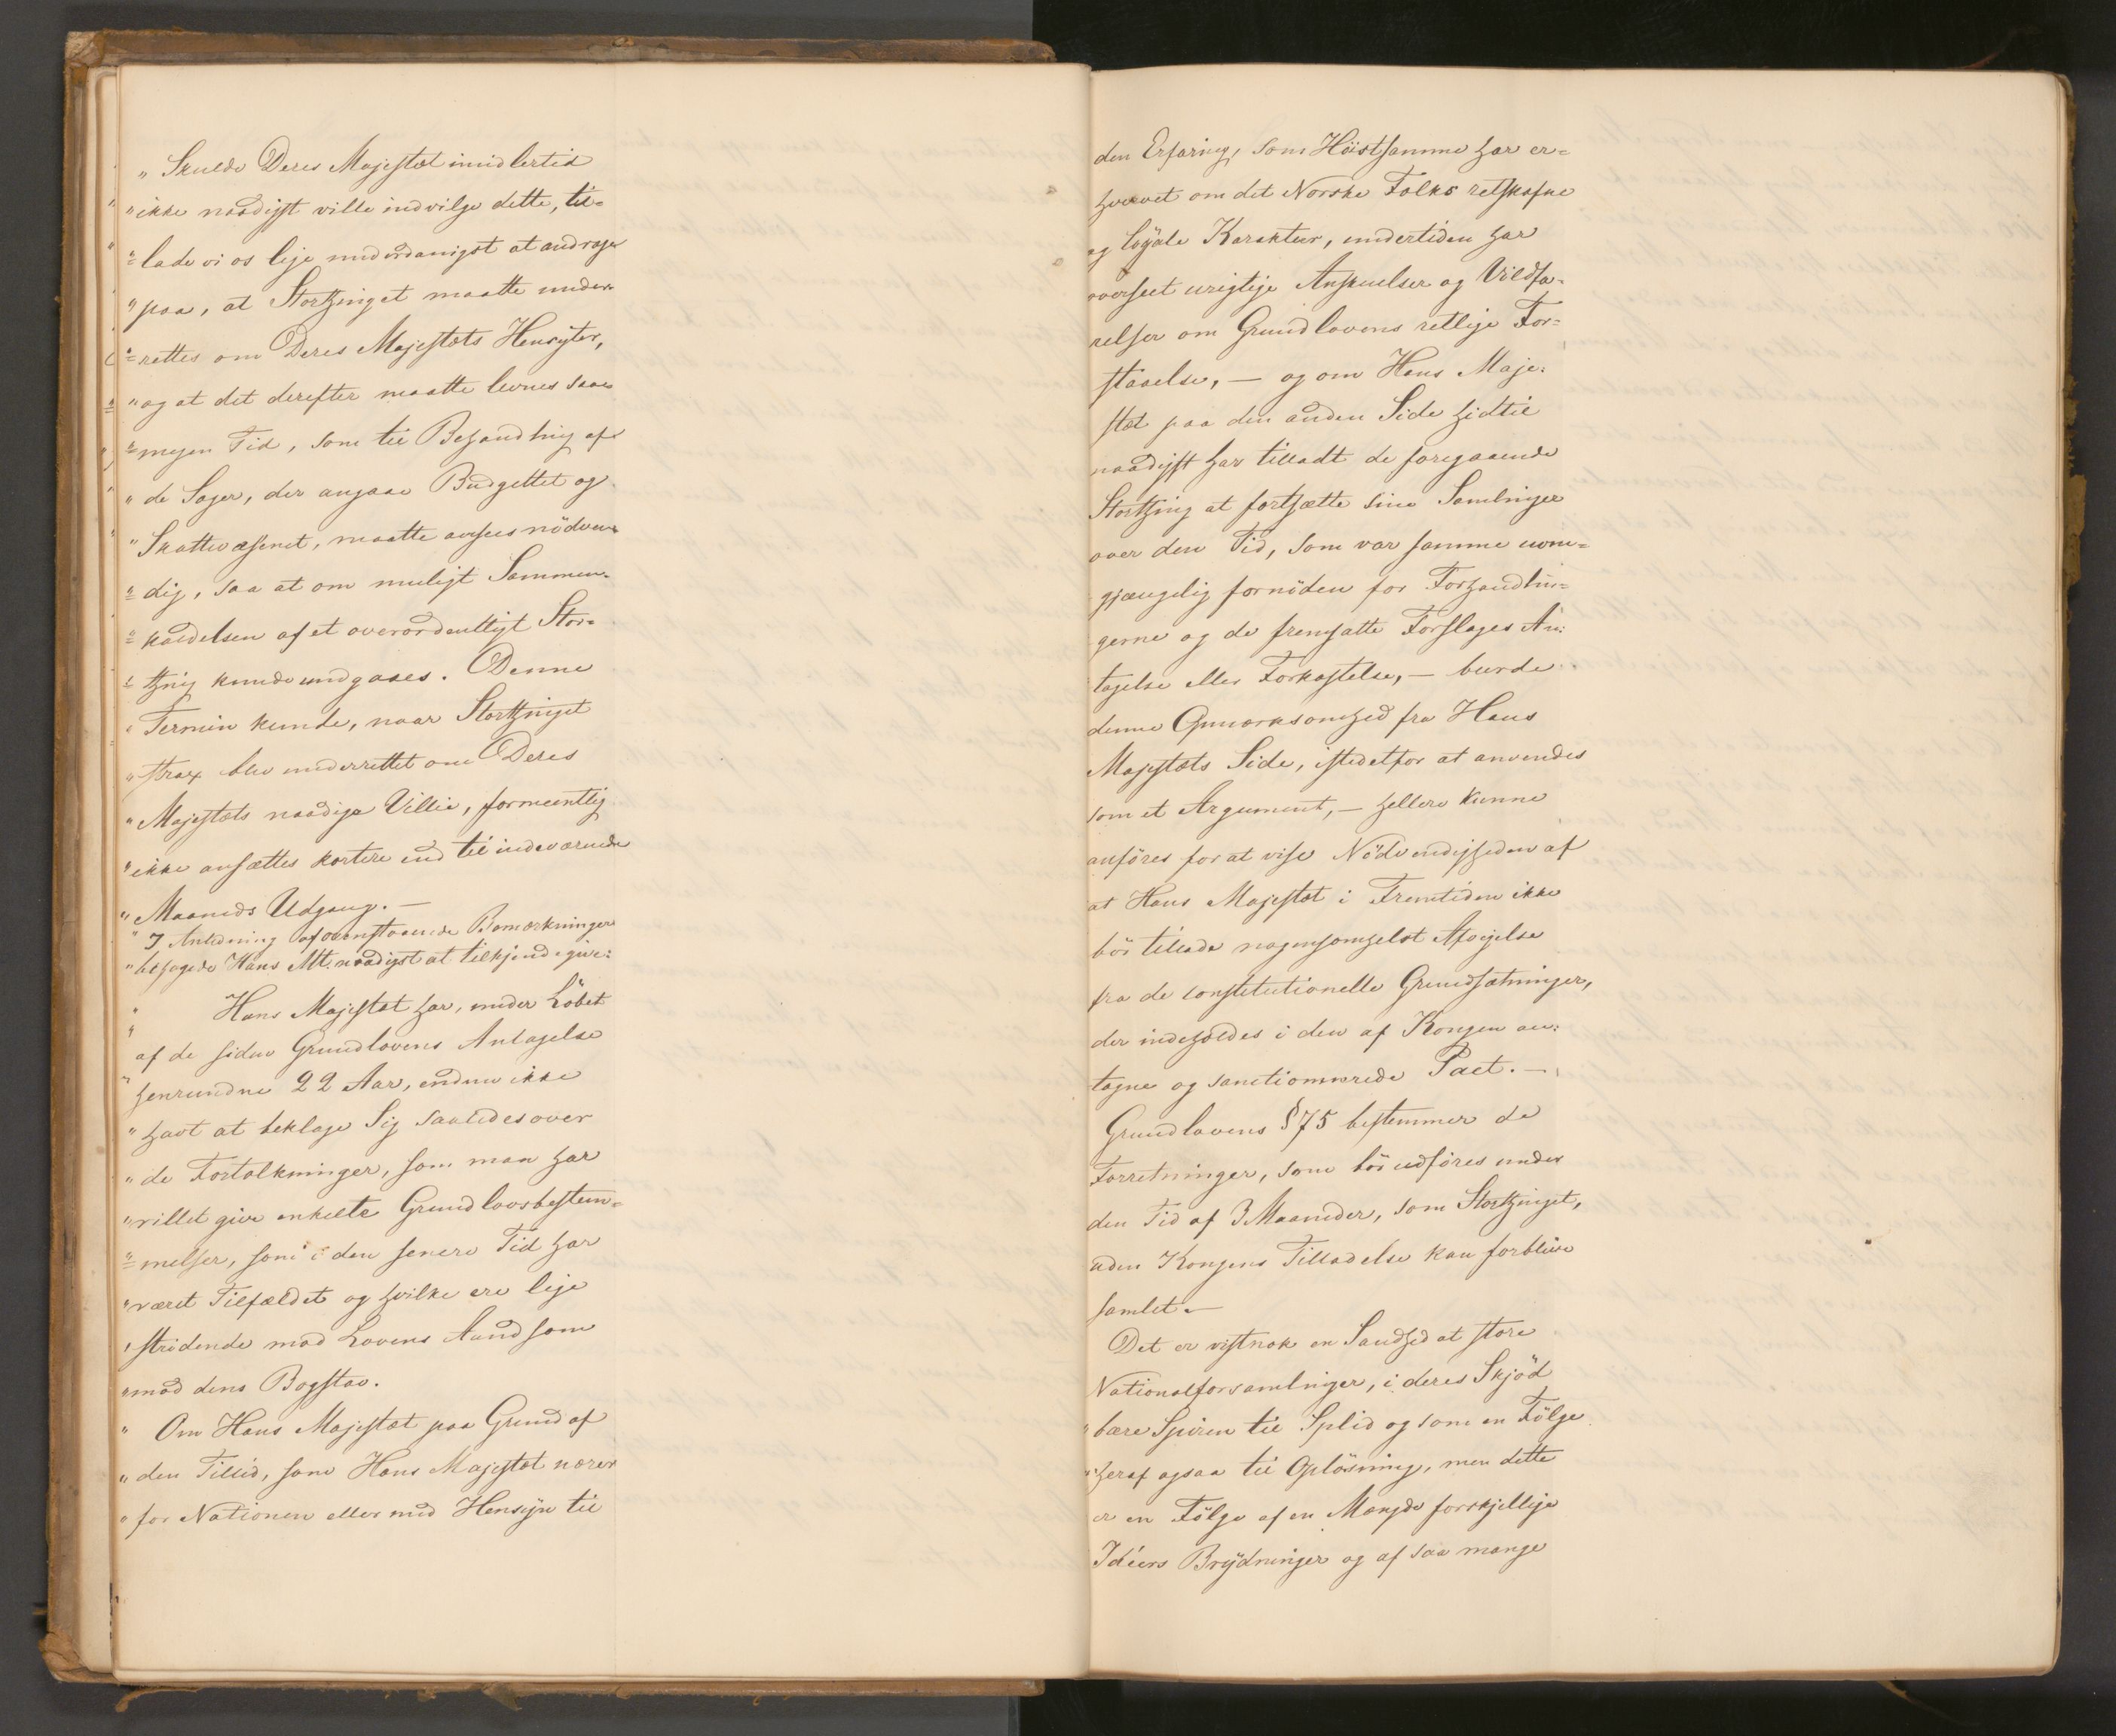 „ Skulde Deres Majestæt imidlertid
„ ikke naadigst ville indvilge dette, til=
„= lade vi os lige underdanigst at andrage
„ paa, at Storthinget maatte under=
„= rettes om Deres Majestæts Hensyter,
„ og at det derefter maatte levnes saa
„= megen Tid, som til Behandling af
„ de Sager, der angaae Budgettet og
„ Skattevæsenet, maatte ansees nödven=
„= dig, saa at om muligt Sammen=
„= kaldelsen af et overordentligt Stor=
„= thing kunde undgaaes. Denne
„ Termin kunde, naar Storthinget
„ strax blev underrettet om Deres
„ Majestæts naadige Villie, formeentlig
„ ikke ansættes kortere end til indeværende
„ Maaneds Udgang. —
„ I Anledning af ovenstaaende Bemærkninger
„ behagede Hans Mt. naadigst at tilkjendegive:
„ Hans Majestæt har, under Löbet
„ af de siden Grundlovens Antagelse
„ henrundne 22 Aar, endnu ikke
„ havt at beklage Sig saaledes over
„ de Fortolkninger, som man har
„ villet give enkelte Grundlovsbestem=
„= melser, som i den senere Tid har
„ været Tilfældet og hvilke ere lige
„ stridende mod Lovens Aand som
„ mod dens Bogstav.
„ Om Hans Majestæt paa Grund af
„ den Tillid, som Hans Majestæt nærer
„ for Nationen eller med Hensyn til
den Erfaring, som Höistsamme har er=
hvervet om det Norske Folks retskafne
og loyale Karakteer, undertiden har
overseet urigtige Anskuelser og Vildfa=
relser om Grundlovens retlige For=
staaelse, — og om Hans Maje=
stæt paa den anden Side hidtil
naadigst har tilladt de foregaaende
Storthing at fortsætte sine Samlinger
over den Tid, som var samme uom=
gjængelig fornöden for Forhandlin=
gerne og de fremsatte Forslages An=
tagelse eller Forkastelse, — burde
denne Opmærksomhed fra Hans
Majestæts Side, istedetfor at anvendes
som et Argument, — hellere kunne
anföres for at vise Nödvendigheden af
at Hans Majestæt i Fremtiden ikke
bör tillade nogensomhelst Afvigelse
fra de constitutionelle Grundsætninger,
der indeholdes i den af Kongen an=
tagne og sanctionnerede Pact. —
Grundlovens § 75 bestemmer de
Forretninger, som bör udföres under
den Tid af 3 Maaneder, som Storthinget,
uden Kongens Tilladelse kan forblive
samlet. —
Det er vistnok en Sandhed at store
Nationalforsamlinger, i deres Skjöd
„ bære Spiren til Splid og som en Fölge
„ heraf ogsaa til Oplösning, men dette
er en Fölge af en Mængde forskjellige
Idéers Brydninger og af saa mange